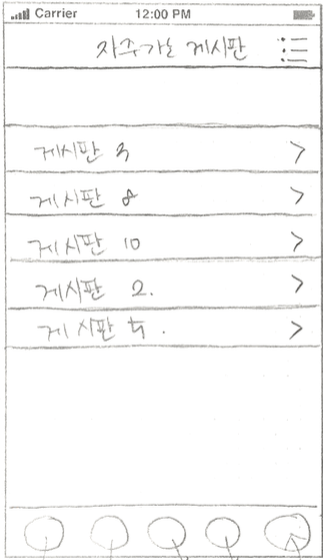 Carrier 12:00 PM
자주가는 게시판
게시판 3
게시판 8
게시판 10
게시판 2.
게시판 5.